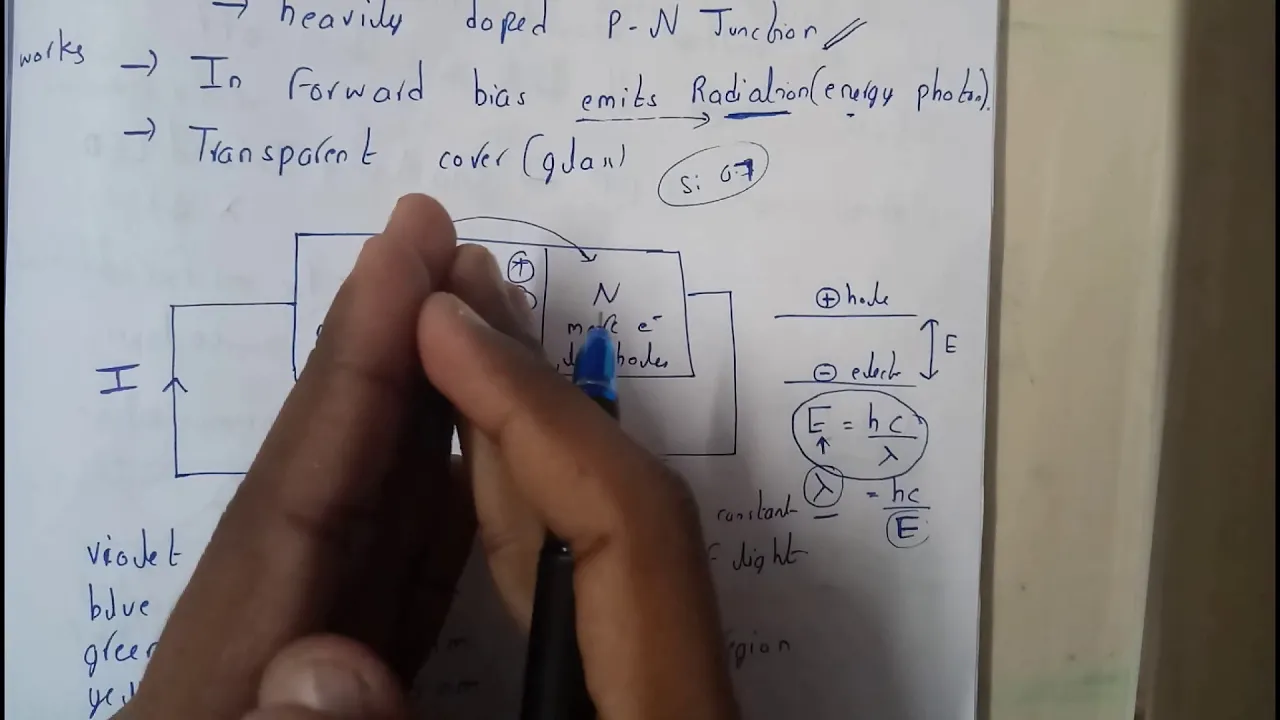 → heavily doped P-N Junction
works → In Forward bias emits Radiation (energy photon).
→ Transparent cover (glass)
Si 0.7
+
N
e⁻
holes
I
⊕ hole
⊖ elect
E
E = hc/λ
λ = hc/E
constant
light
violet
blue
green